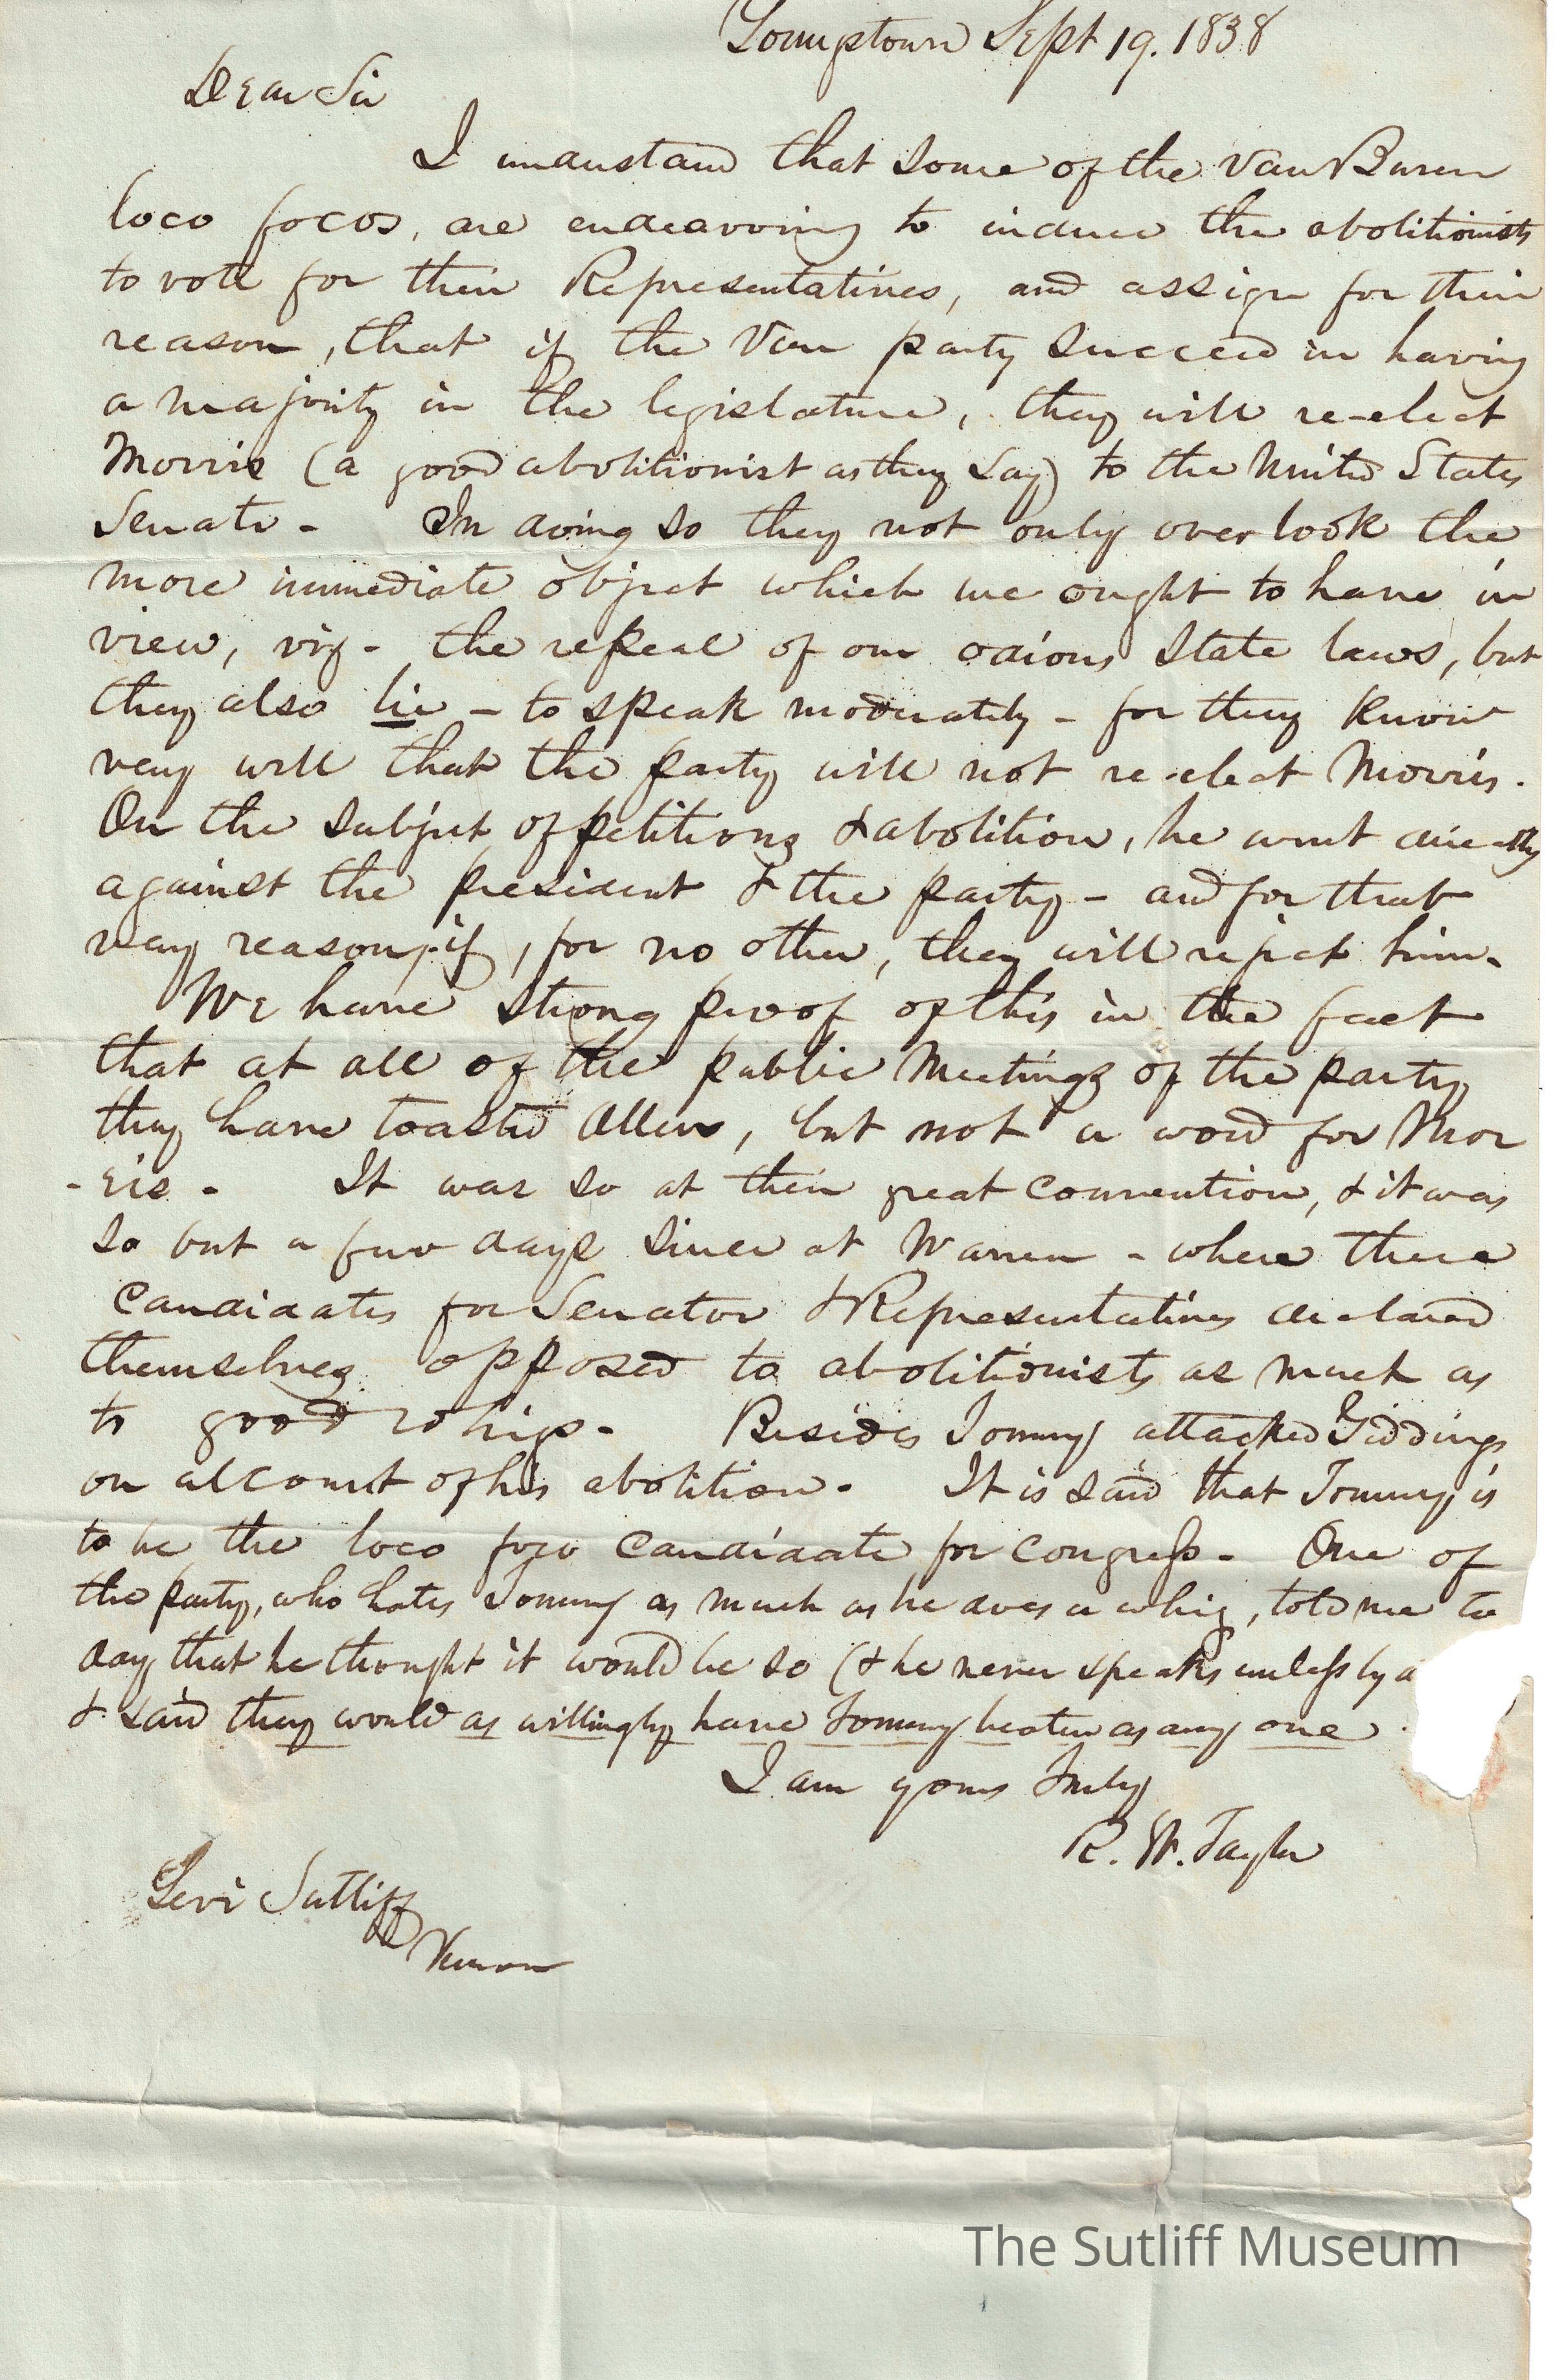 Youngstown Sept 19. 1838
Dear Sir
I understand that some of the Van Buren
loco focos, are endeavoring to induce the abolitionists
to vote for their Representatives, and assign for their
reason, that if the Van party succeed in having
a majority in the legislature, they will re-elect
Morris (a good abolitionist as they say) to the United States
Senate - In doing so they not only overlook the
more immediate object which we ought to have in
view, viz - the repeal of our odious State laws, but
they also lie - to speak moderately - for they know
very well that the party will not re-elect Morris.
On the subject of petitions & abolition, he went directly
against the president & the party - and for that
very reason, if, for no other, they will reject him.
We have strong proof of this in the fact
that at all of the public meetings of the party
they have toasted Allen, but not a word for Mor
-ris - It was so at their great convention, & it was
so but a few days since at Warren - where there
candidates for Senator & Representatives declared
themselves opposed to abolitionists as much as
to good whigs. Besides Tommy attacked Giddings
on account of his abolition. It is said that Tommy is
to be the loco foco candidate for congress. One of
the party, who hates Tommy as much as he does a whig, told me to
day that he thought it would be so (& he never speaks unless by a
& said they would as willingly have Tommy beaten as any one.
I am yours truly
R. W. Tayler
Levi Sutliff
Vernon
The Sutliff Museum